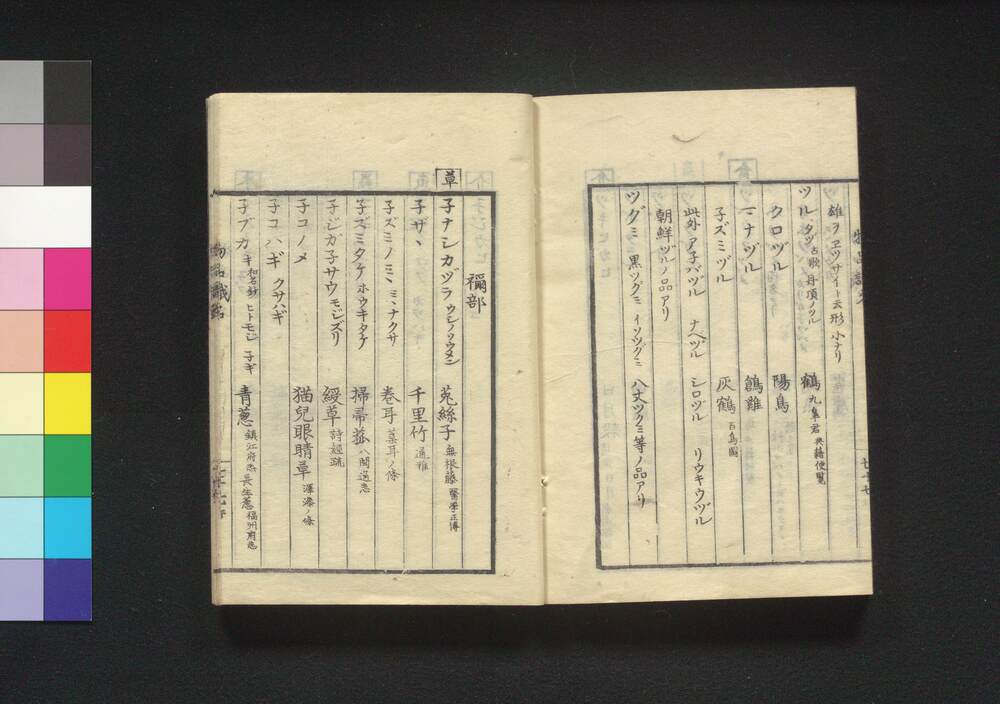 雄ヲヱツサイト云形小ナリ
ツル タヅ 古歌 丹頂ノツル 鶴 九皐君 典籍便覧
クロヅル 陽烏
マナヅル 鶬雞
子ズミヅル 灰鶴 百鳥圖
此外ア子バヅル ナベヅル シロヅル リウキウヅル
朝鮮ヅルノ品アリ
ツグミ 黒ツグミ イソツグミ 八丈ツグミ等ノ品アリ
禰部
草 子ナシカヅラ ウシノソウメン 菟絲子 無根藤 醫學正傳
子ザヽ 千里竹 通雅
子ズミノミヽ ミヽナクサ 巻耳 葈耳ノ條
子ズミタケ ホウキタケ 掃帚菰 八閩通志
子ジガ子サウ モジズリ 綬草 詩經疏
子コノメ 猫兒眼睛草 澤漆ノ條
子コハギ クサハギ
子ブカ キ 和名鈔 ヒトモジ 子ギ 青葱 鎮江府志 長生葱 福州府志
物品識名